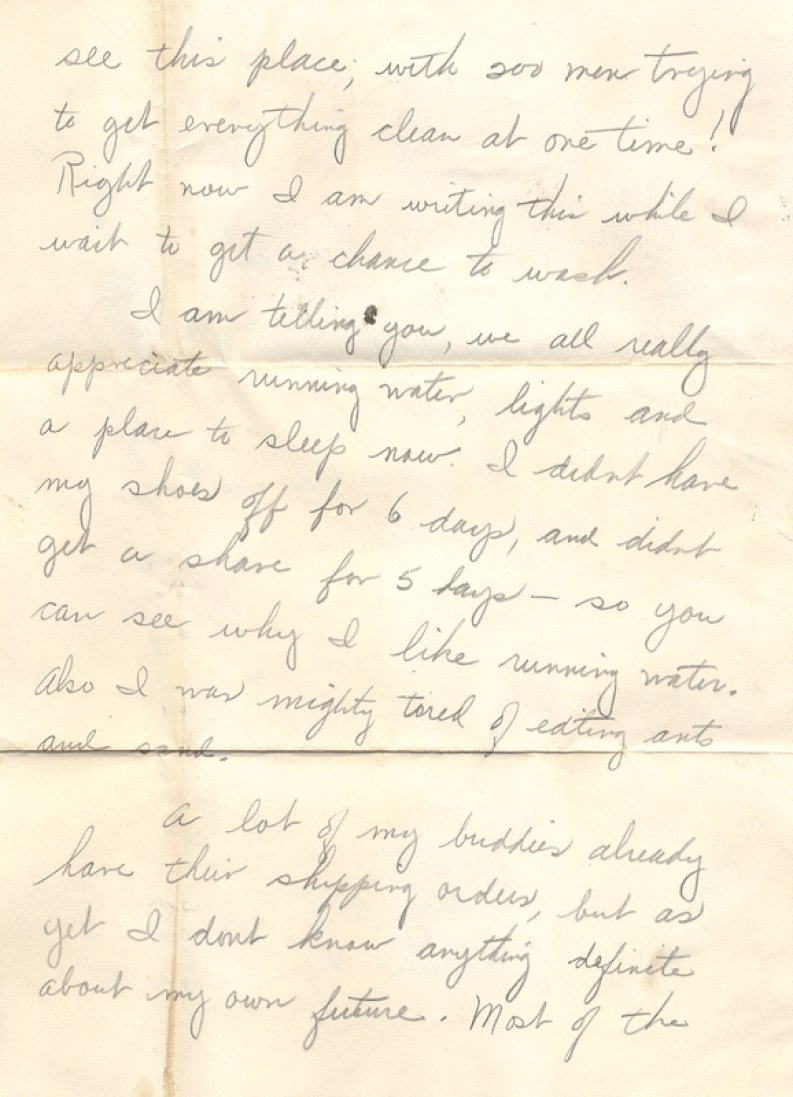 see this place, with 200 men trying
to get everything clean at one time!
Right now I am writing this while I
wait to get a chance to wash.
I am telling you, we all really
appreciate running water, lights and
a place to sleep now. I didnt have
my shoes off for 6 days, and didnt
get a shave for 5 days — so you
can see why I like running water.
Also I was mighty tired of eating ants
and sand.
A lot of my buddies already
have their shipping orders, but as
yet I dont know anything definite
about my own future. Most of the